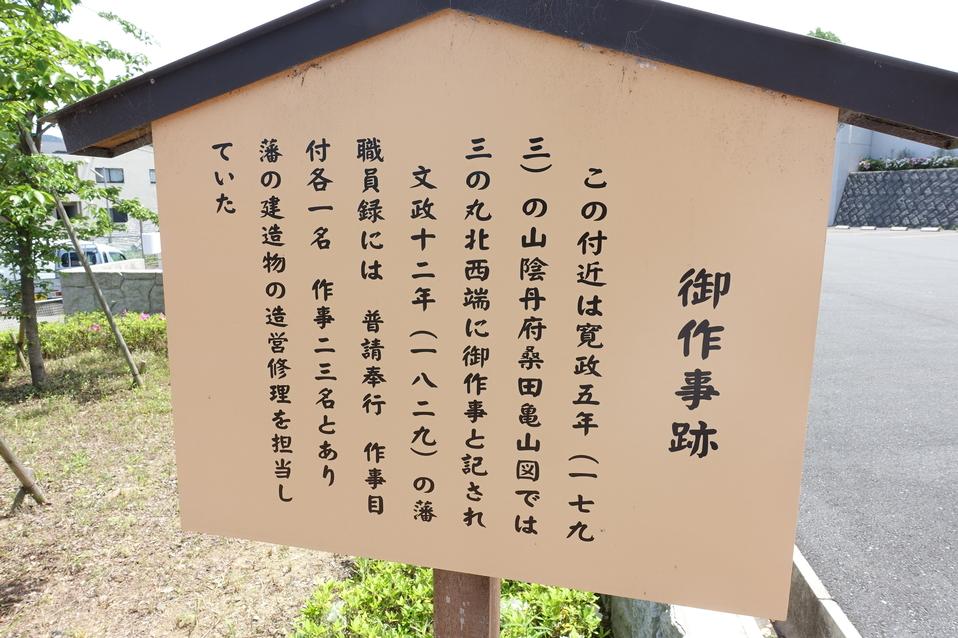 御作事跡
この付近は寛政五年（一七九
三）の山陰丹府桑田亀山図では
三の丸北西端に御作事と記され
文政十二年（一八二九）の藩
職員録には　普請奉行　作事目
付各一名　作事二三名とあり
藩の建造物の造営修理を担当し
ていた